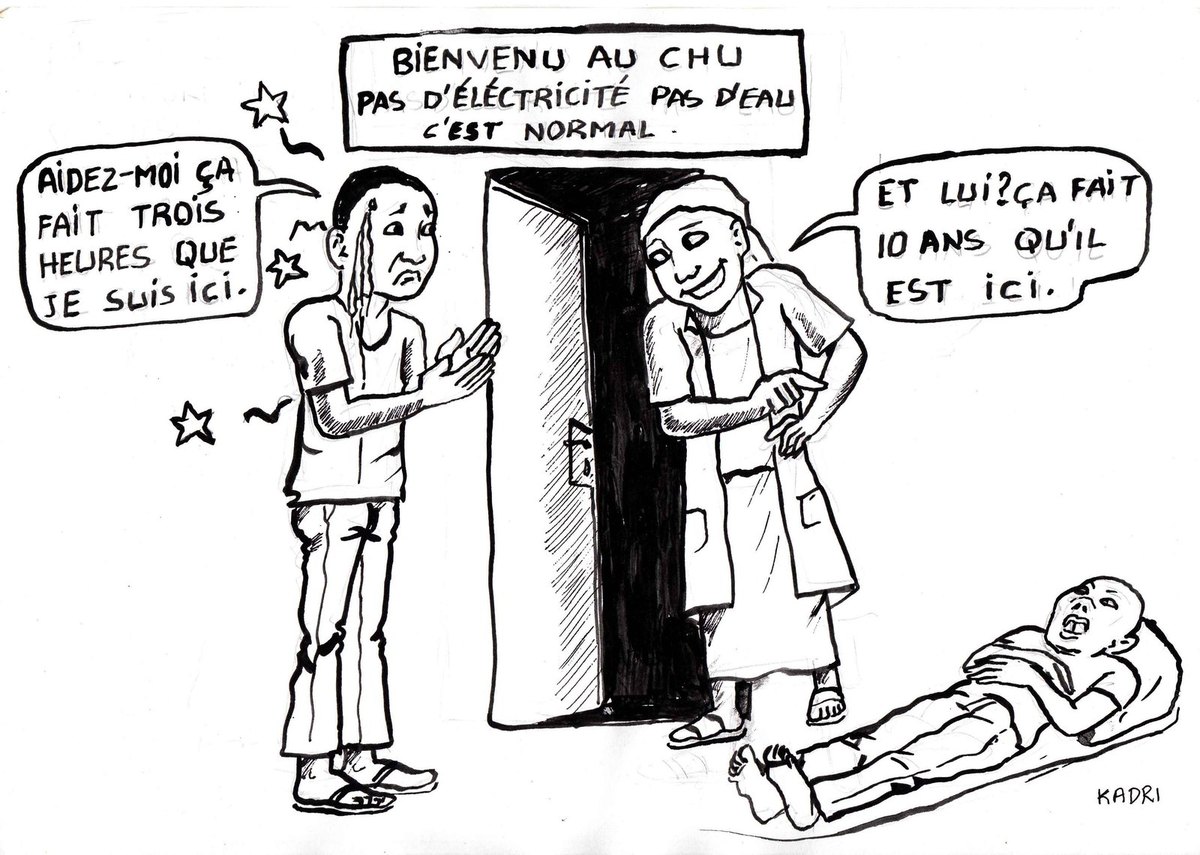 BIENVENU AU CHU
PAS D'ÉLÉCTRICITÉ PAS D'EAU
C'EST NORMAL.
AIDEZ-MOI ÇA
FAIT TROIS
HEURES QUE
JE SUIS ICI.
ET LUI? ÇA FAIT
10 ANS QU'IL
EST ICI.
KADRI